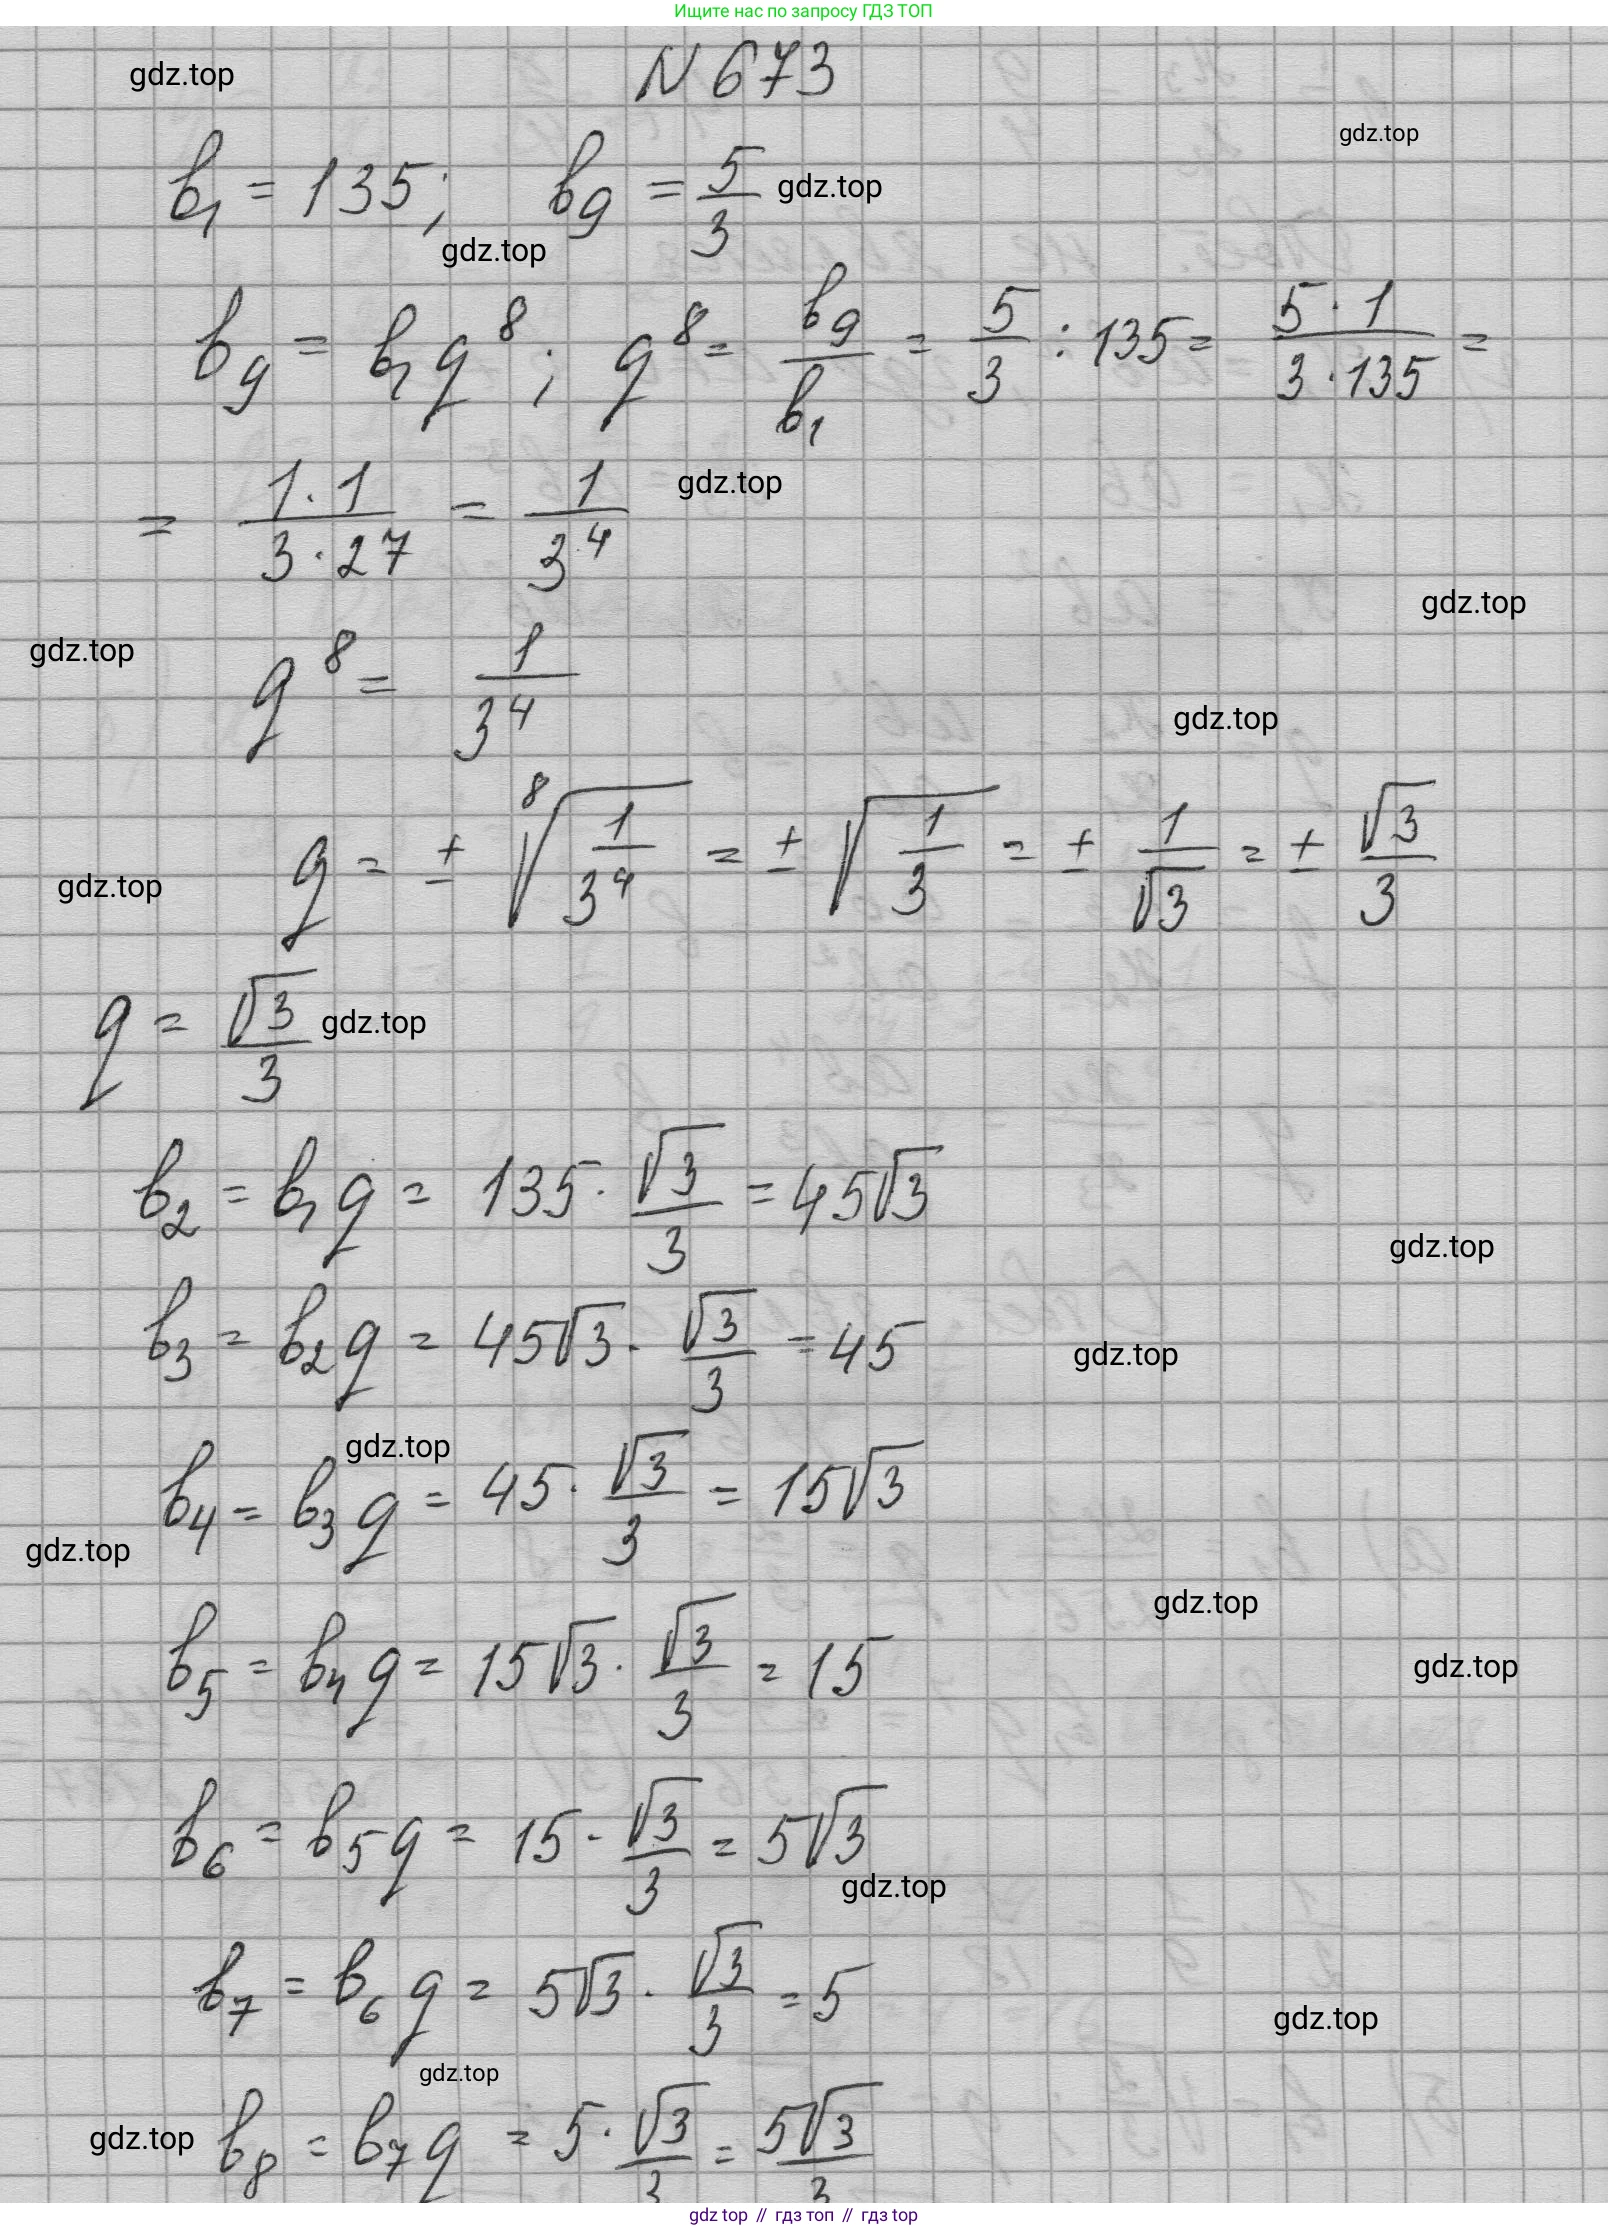 Ищите нас по запросу ГДЗ ТОП
gdz.top
N 673
gdz.top
b₁ = 135; b₉ = 5/3
gdz.top
gdz.top
b₉ = b₁q⁸; q⁸ = b₉/b₁ = 5/3 : 135 = (5·1)/(3·135) =
= (1·1)/(3·27) = 1/3⁴
gdz.top
gdz.top
gdz.top
q⁸ = 1/3⁴
gdz.top
q = ± ⁸√(1/3⁴) = ± √(1/3) = ± 1/√3 = ± √3/3
gdz.top
q = √3/3
gdz.top
b₂ = b₁q = 135 · √3/3 = 45√3
gdz.top
b₃ = b₂q = 45√3 · √3/3 = 45
gdz.top
gdz.top
b₄ = b₃q = 45 · √3/3 = 15√3
gdz.top
gdz.top
b₅ = b₄q = 15√3 · √3/3 = 15
gdz.top
b₆ = b₅q = 15 · √3/3 = 5√3
gdz.top
b₇ = b₆q = 5√3 · √3/3 = 5
gdz.top
gdz.top
gdz.top
b₈ = b₇q = 5 · √3/3 = 5√3/3
gdz top // гдз топ // гдз top